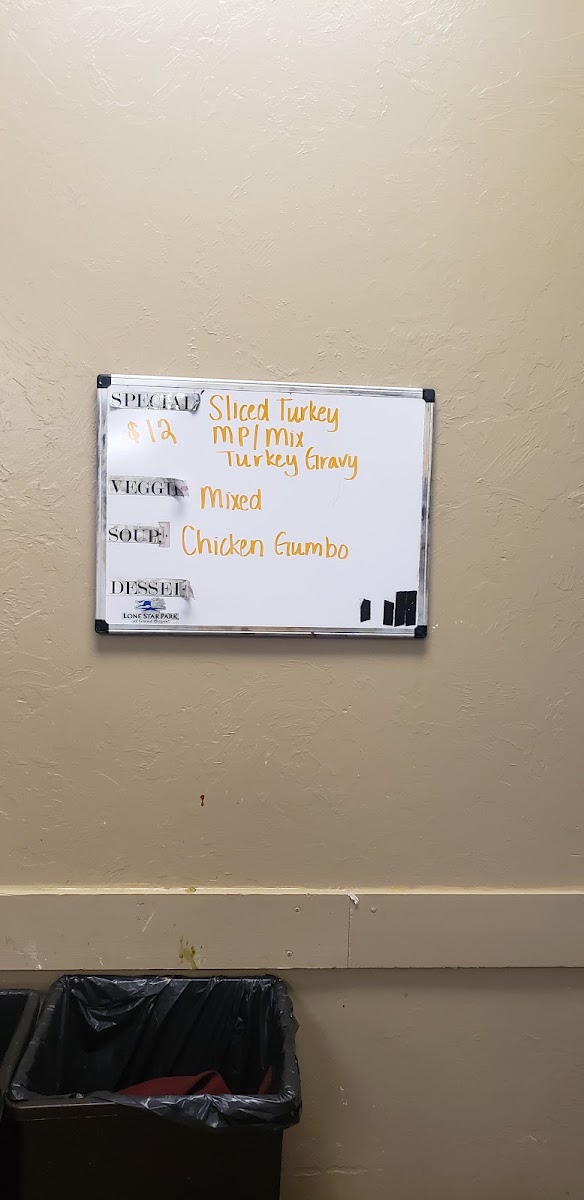 SPECIAL Sliced Turkey
$12 MP/Mix
Turkey Gravy
VEGGIE Mixed
SOUP: Chicken Gumbo
DESSE
LONE STAR PARK
at Grand Prairie